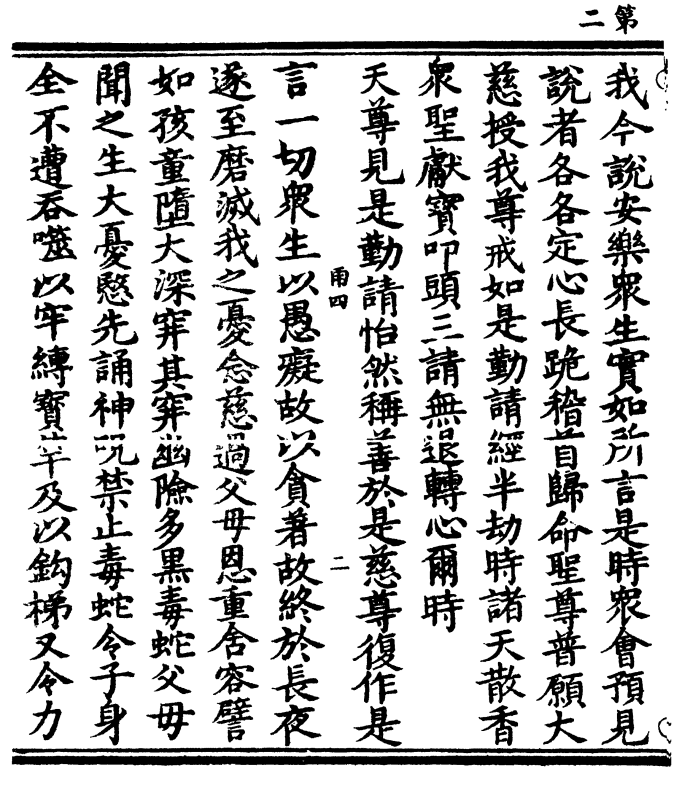 第二
我今說安樂衆生實如所言是時衆會預見
說者各各定心長跪稽首歸命聖尊普願大
慈授我尊戒如是勤請經半劫時諸天散香
衆聖獻寶叩頭三請無退轉心爾時
天尊見是勤請怡然稱善於是慈尊復作是
甬四 二
言一切衆生以愚癡故以貪著故終於長夜
遂至磨滅我之憂念慈過父母恩重舍容譬
如孩童墮大深穽其穽幽險多黑毒蛇父母
聞之生大憂愍先誦神呪禁止毒蛇令子身
全不遭吞噬以牢縛寶竿及以鈎梯又令力